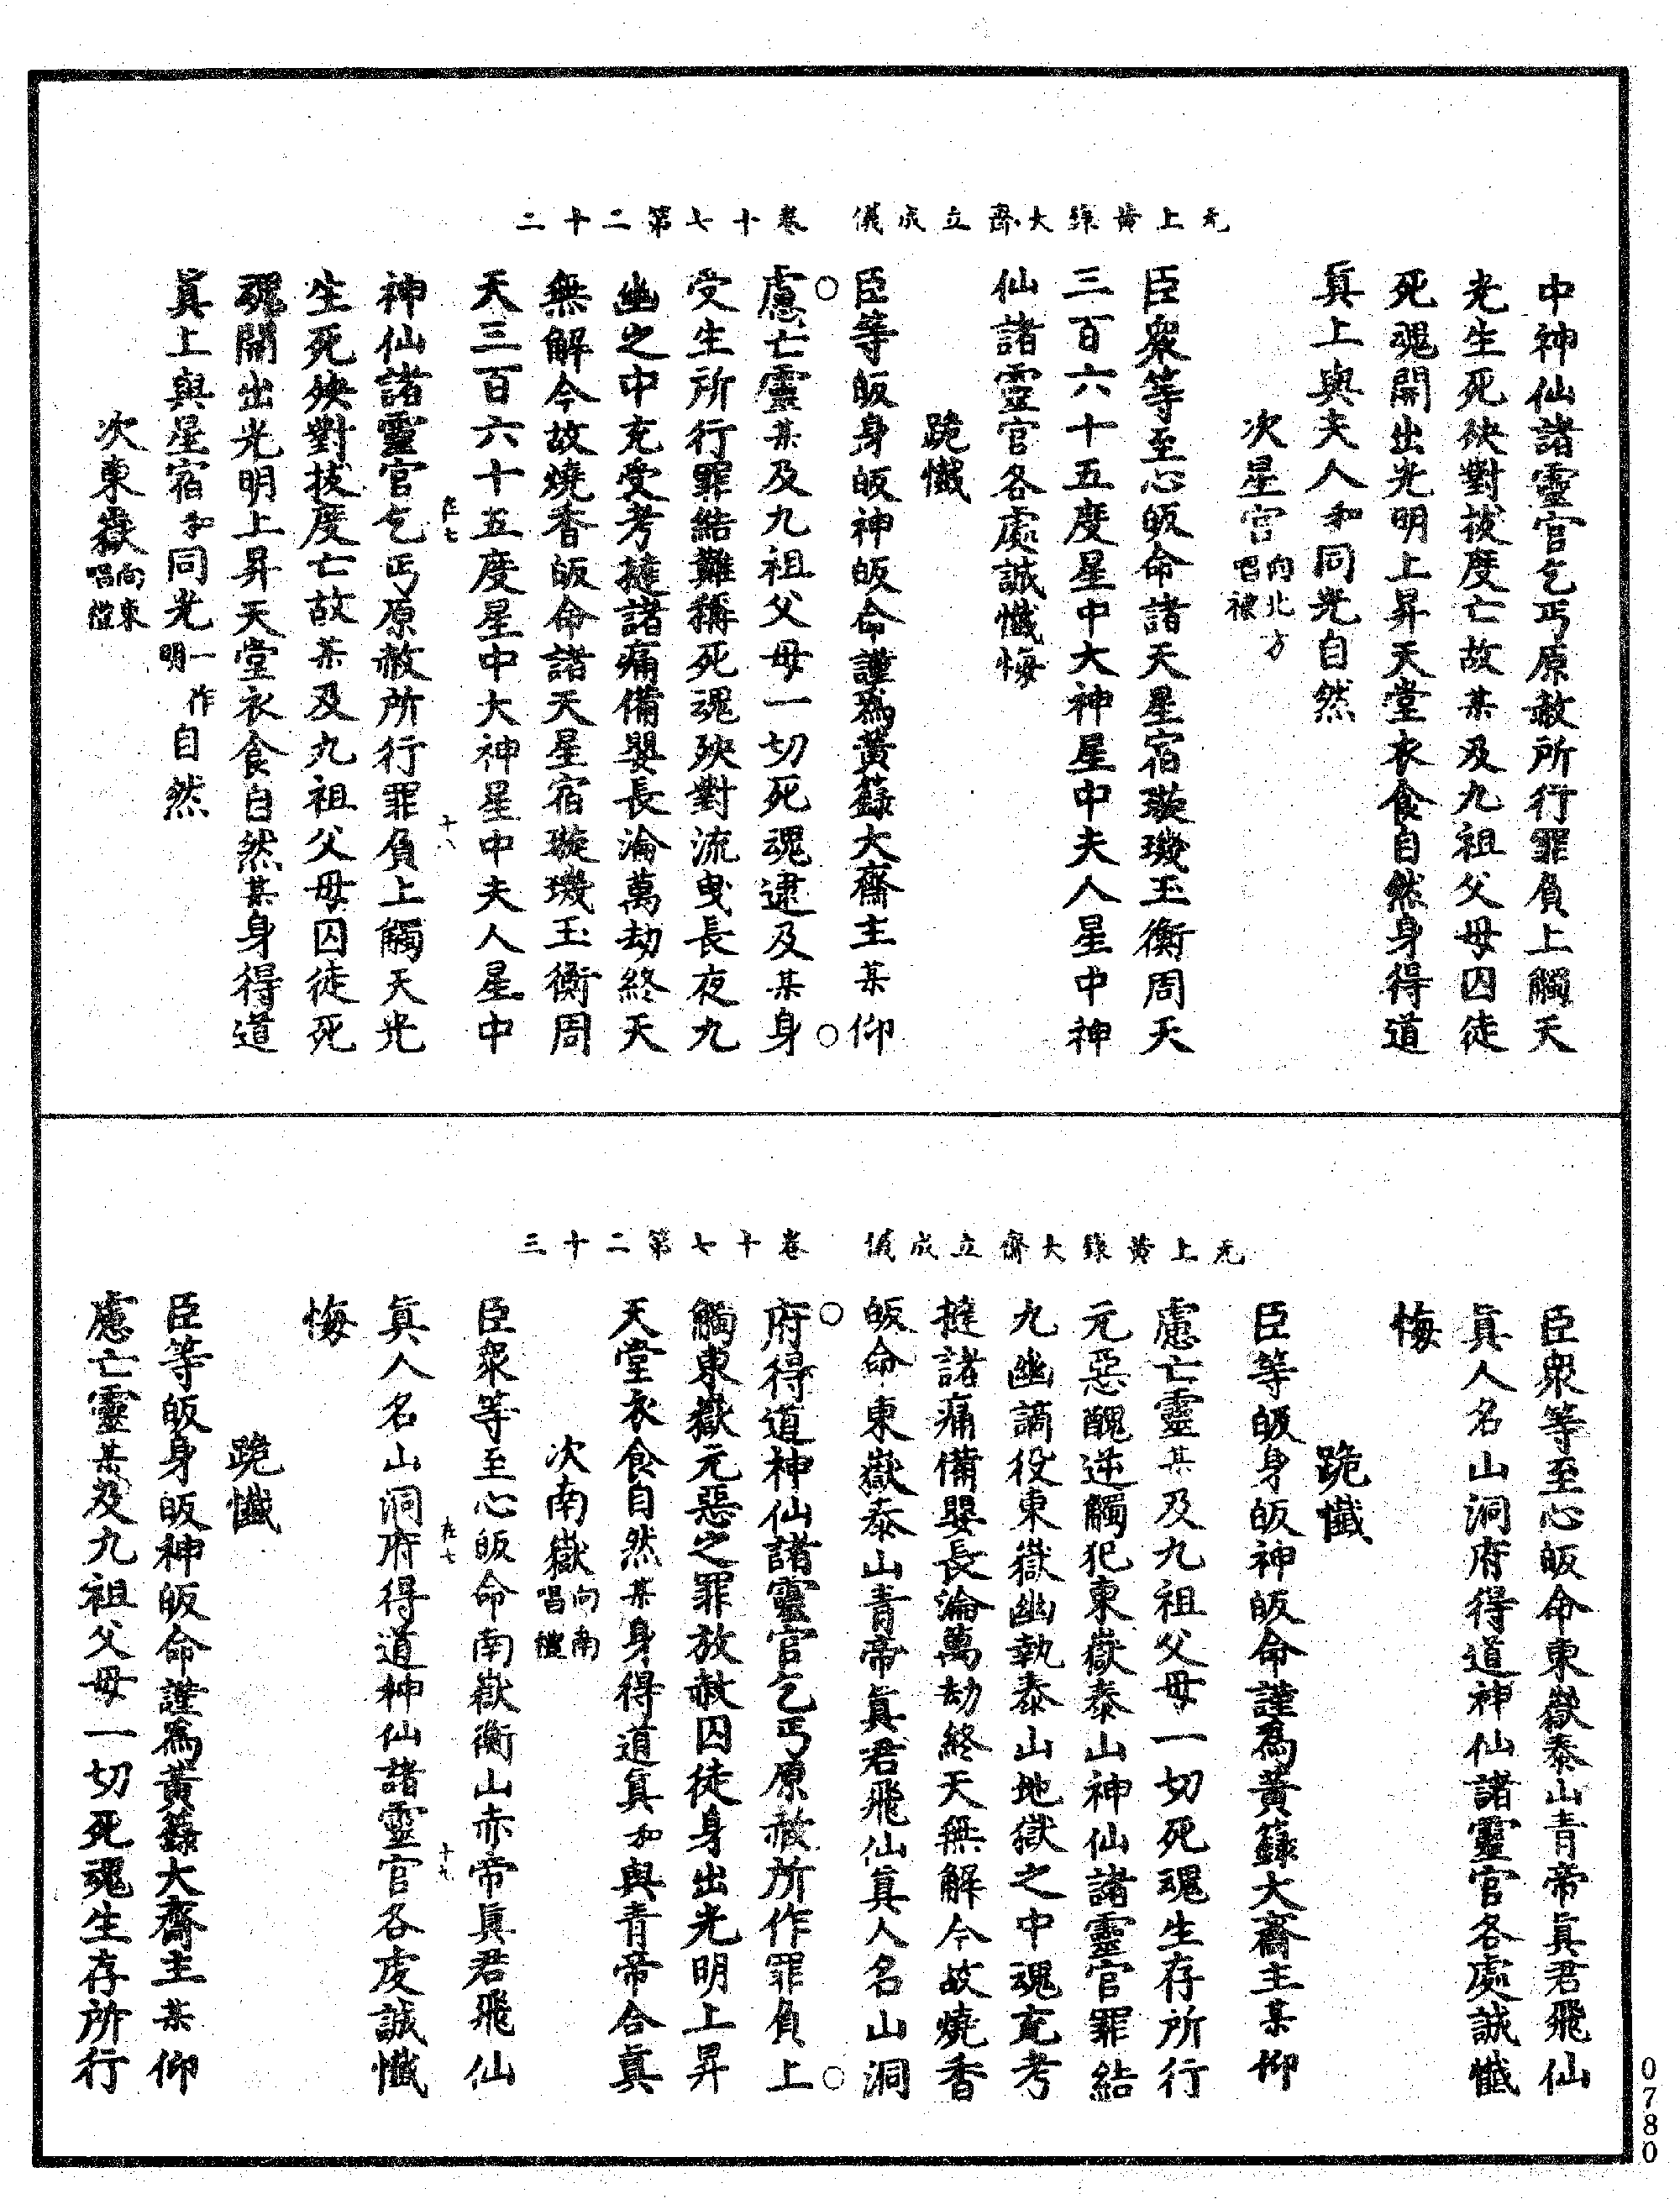 无上黃籙大齋立成儀　卷十七第二十二
中神仙諸靈官乞丐原赦所行罪負上觸天
光生死殃對拔度亡故某及九祖父母囚徒
死魂開出光明上昇天堂衣食自然身得道
真上與夫人和同光自然
次星宮向北方唱禮
臣衆等至心皈命諸天星宿璇璣玉衡周天
三百六十五度星中大神星中夫人星中神
仙諸靈官各處誠懺悔
跪懺
臣等皈身皈神皈命謹爲黃籙大齋主某仰
慮亡靈某及九祖父母一切死魂逮及某身
受生所行罪結難稱死魂殃對流曳長夜九
幽之中充受考撻諸痛備嬰長淪萬劫終天
無解今故燒香皈命諸天星宿璇璣玉衡周
天三百六十五度星中大神星中夫人星中
在七　十八
神仙諸靈官乞丐原赦所行罪負上觸天光
生死殃對拔度亡故某及九祖父母囚徒死
魂開出光明上昇天堂衣食自然某身得道
眞上與星宿和同光一作明自然
次東嶽向東唱禮
无上黃籙大齋立成儀　卷十七第二十三
臣衆等至心皈命東嶽泰山青帝眞君飛仙
眞人名山洞府得道神仙諸靈官各處誠懺
悔
跪懺
臣等皈身皈神皈命謹爲黃籙大齋主某仰
慮亡靈某及九祖父母一切死魂生存所行
元惡醜逆觸犯東嶽泰山神仙諸靈官罪結
九幽謫役東嶽幽執泰山地獄之中魂充考
撻諸痛備嬰長淪萬劫終天無解今故燒香
皈命東嶽泰山青帝眞君飛仙眞人名山洞
府得道神仙諸靈官乞丐原赦所作罪負上
觸東嶽元惡之罪放赦囚徒身出光明上昇
天堂衣食自然某身得道眞和與青帝合眞
次南嶽向南唱禮
臣衆等至心皈命南嶽衡山赤帝眞君飛仙
在七　十九
眞人名山洞府得道神仙諸靈官各虔誠懺
悔
跪懺
臣等皈身皈神皈命謹爲黃籙大齋主某仰
慮亡靈某及九祖父母一切死魂生存所行
0780